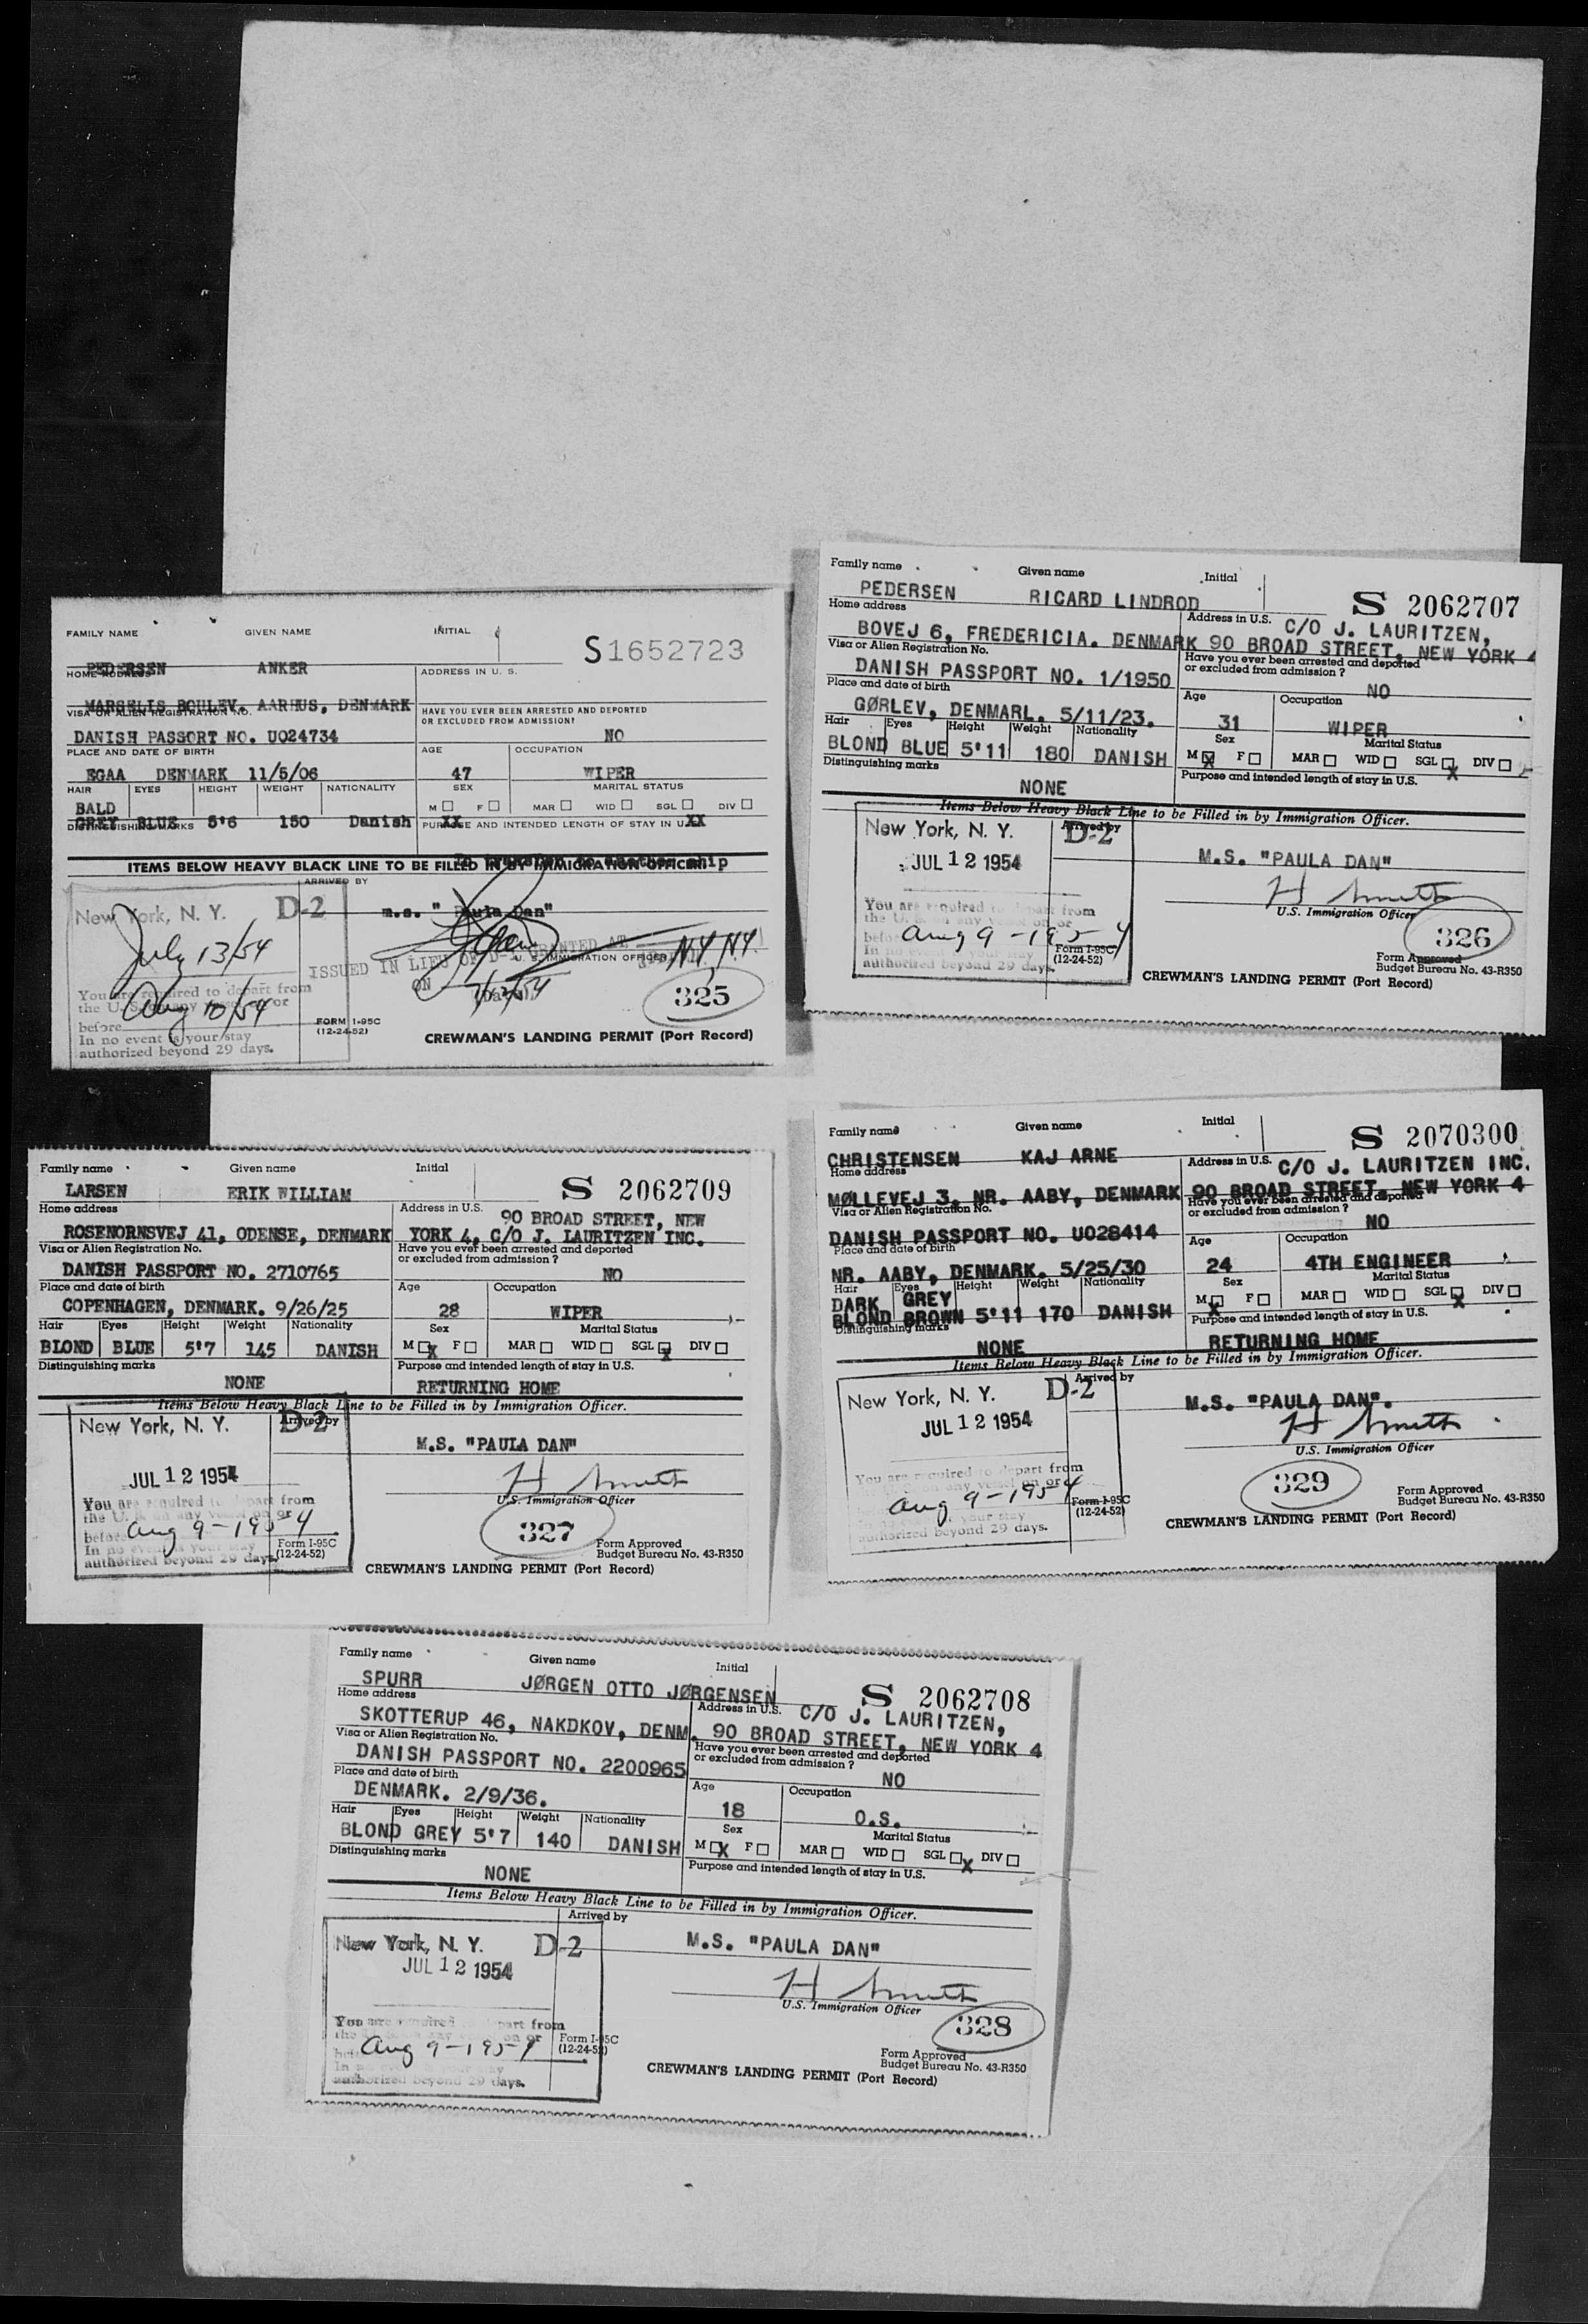 FAMILY NAME GIVEN NAME INITIAL
S1652723
PEDERSEN ANKER
HOME ADDRESS ADDRESS IN U. S.
MARSELIS BOULEV. AARHUS, DENMARK
VISA OR ALIEN REGISTRATION NO. HAVE YOU EVER BEEN ARRESTED AND DEPORTED
OR EXCLUDED FROM ADMISSION?
DANISH PASSORT NO. U024734 NO
PLACE AND DATE OF BIRTH AGE OCCUPATION
EGAA DENMARK 11/5/06 47 WIPER
HAIR EYES HEIGHT WEIGHT NATIONALITY SEX MARITAL STATUS
BALD M F MAR WID SGL DIV
GREY BLUE 5'6 150 Danish XX XX
DISTINGUISHING MARKS PURPOSE AND INTENDED LENGTH OF STAY IN U.S.
to transfer to another ship
ITEMS BELOW HEAVY BLACK LINE TO BE FILLED IN BY IMMIGRATION OFFICER
ARRIVED BY
New York, N. Y. D-2 m.s. "Paula Dan"
July 13/54
ISSUED IN LIEU OF D- GRANTED AT N.Y. N.Y.
U. S. IMMIGRATION OFFICER
ON 7/12/54
(Date)
325
You are required to depart from
the U. S. on any vessel on or
before Aug 10/54
In no event is your stay
authorized beyond 29 days.
FORM I-95C
(12-24-52)
CREWMAN'S LANDING PERMIT (Port Record)
Family name Given name Initial
PEDERSEN RICARD LINDROD S 2062707
Home address Address in U.S. C/O J. LAURITZEN,
BOVEJ 6, FREDERICIA. DENMARK 90 BROAD STREET, NEW YORK 4
Visa or Alien Registration No. Have you ever been arrested and deported
or excluded from admission ?
DANISH PASSPORT NO. 1/1950 NO
Place and date of birth Age Occupation
GØRLEV, DENMARL. 5/11/23. 31 WIPER
Hair Eyes Height Weight Nationality Sex Marital Status
BLOND BLUE 5'11 180 DANISH M X F MAR WID SGL X DIV
Distinguishing marks Purpose and intended length of stay in U.S.
NONE
Items Below Heavy Black Line to be Filled in by Immigration Officer.
New York, N. Y. D-2 Arrived by
JUL 12 1954 M.S. "PAULA DAN"
H Smith
U.S. Immigration Officer
326
You are required to depart from
the U. S. on any vessel on or
before Aug 9 - 1954
In no event is your stay
authorized beyond 29 days.
Form I-95C
(12-24-52)
Form Approved
Budget Bureau No. 43-R350
CREWMAN'S LANDING PERMIT (Port Record)
Family name Given name Initial
LARSEN ERIK WILLIAM S 2062709
Home address Address in U.S. 90 BROAD STREET, NEW
ROSENORNSVEJ 41, ODENSE, DENMARK YORK 4, C/O J. LAURITZEN INC.
Visa or Alien Registration No. Have you ever been arrested and deported
or excluded from admission ?
DANISH PASSPORT NO. 2710765 NO
Place and date of birth Age Occupation
COPENHAGEN, DENMARK. 9/26/25 28 WIPER
Hair Eyes Height Weight Nationality Sex Marital Status
BLOND BLUE 5'7 145 DANISH M X F MAR WID SGL X DIV
Distinguishing marks Purpose and intended length of stay in U.S.
NONE RETURNING HOME
Items Below Heavy Black Line to be Filled in by Immigration Officer.
New York, N. Y. D-2 Arrived by
M.S. "PAULA DAN"
JUL 12 1954
H Smith
U.S. Immigration Officer
327
You are required to depart from
the U. S. on any vessel on or
before Aug 9 - 1954
In no event is your stay
authorized beyond 29 days.
Form I-95C
(12-24-52)
Form Approved
Budget Bureau No. 43-R350
CREWMAN'S LANDING PERMIT (Port Record)
Family name Given name Initial
S 2070300
CHRISTENSEN KAJ ARNE
Home address Address in U.S. C/O J. LAURITZEN INC.
MØLLEVEJ 3, NR. AABY, DENMARK 90 BROAD STREET, NEW YORK 4
Visa or Alien Registration No. Have you ever been arrested and deported
or excluded from admission ?
DANISH PASSPORT NO. U028414 NO
Place and date of birth Age Occupation
NR. AABY, DENMARK. 5/25/30 24 4TH ENGINEER
Hair Eyes Height Weight Nationality Sex Marital Status
DARK GREY M X F MAR WID SGL X DIV
BLOND BROWN 5'11 170 DANISH
Distinguishing marks Purpose and intended length of stay in U.S.
NONE RETURNING HOME
Items Below Heavy Black Line to be Filled in by Immigration Officer.
New York, N. Y. D-2 Arrived by
JUL 12 1954 M.S. "PAULA DAN".
H Smith
U.S. Immigration Officer
329
You are required to depart from
on any vessel on or
Aug 9 - 1954
your stay
authorized beyond 29 days.
Form I-95C
(12-24-52)
Form Approved
Budget Bureau No. 43-R350
CREWMAN'S LANDING PERMIT (Port Record)
Family name Given name Initial
SPURR JØRGEN OTTO JØRGENSEN S 2062708
Home address Address in U.S. C/O J. LAURITZEN,
SKOTTERUP 46, NAKDKOV, DENM. 90 BROAD STREET, NEW YORK 4
Visa or Alien Registration No. Have you ever been arrested and deported
or excluded from admission ?
DANISH PASSPORT NO. 2200965 NO
Place and date of birth Age Occupation
DENMARK. 2/9/36. 18 O.S.
Hair Eyes Height Weight Nationality Sex Marital Status
BLOND GREY 5'7 140 DANISH M X F MAR WID SGL X DIV
Distinguishing marks Purpose and intended length of stay in U.S.
NONE
Items Below Heavy Black Line to be Filled in by Immigration Officer.
Arrived by
New York, N. Y. D-2 M.S. "PAULA DAN"
JUL 12 1954
H Smith
U.S. Immigration Officer
328
You are required part from
the on or
Aug 9 - 1954
In
authorized beyond 29 days.
Form I-95C
(12-24-52)
Form Approved
Budget Bureau No. 43-R350
CREWMAN'S LANDING PERMIT (Port Record)